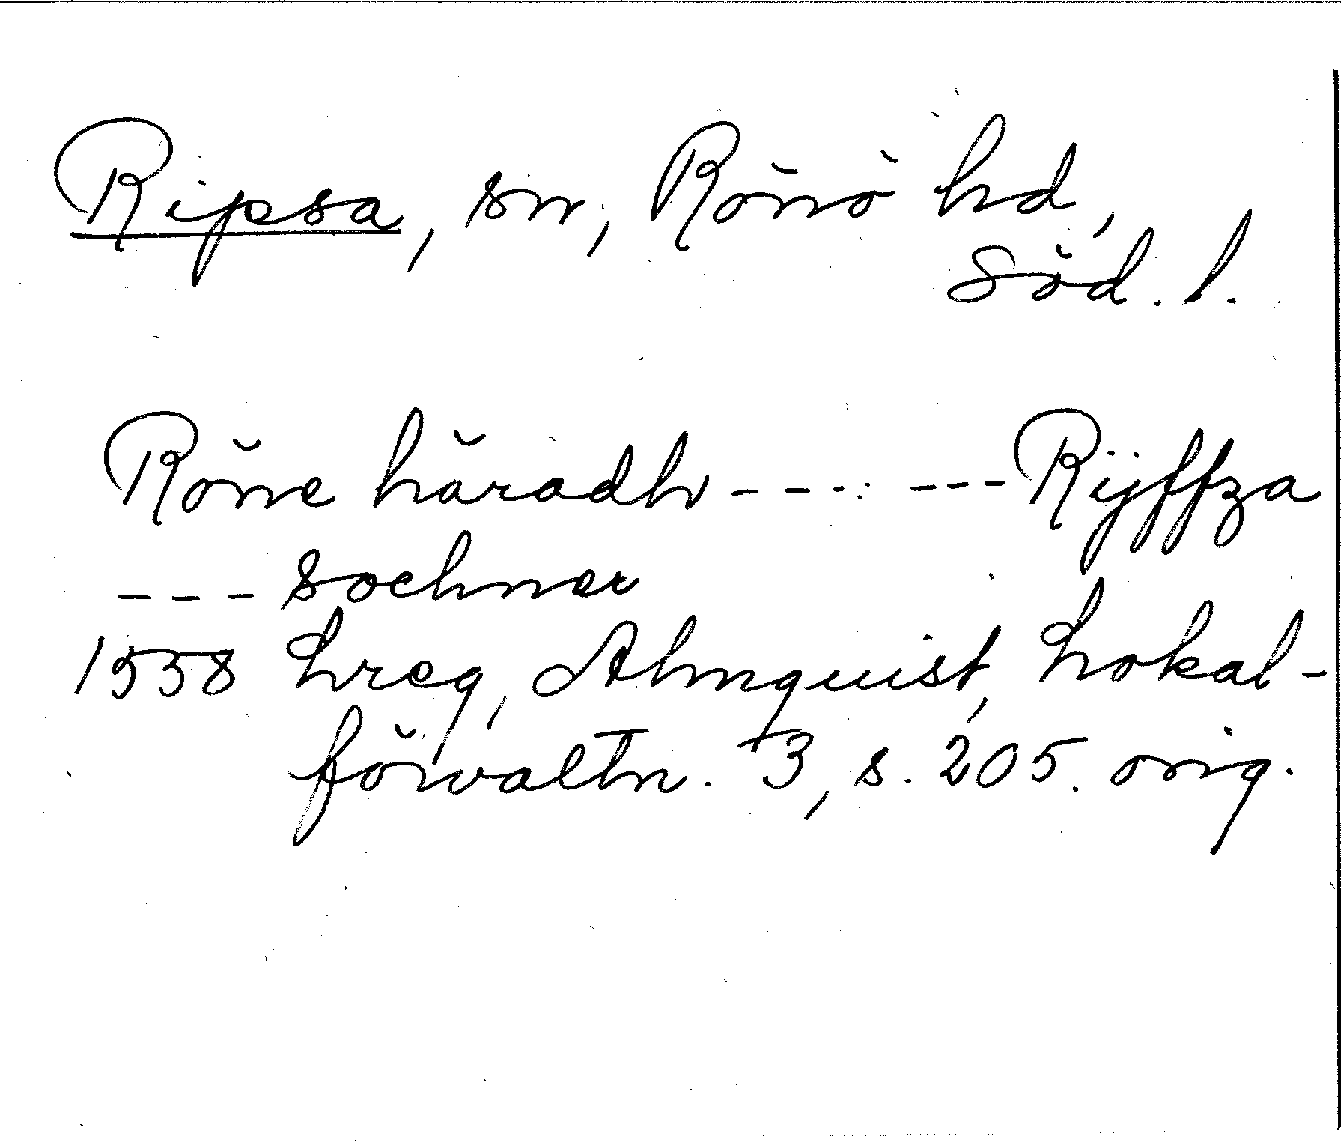 Ripsa, sn, Rönö hd,
Söd. l.
Röne häradh - - - - - - - Rijffza
- - - sochner
1558 Lreg, Almquist, Lokal-
förvaltn. 3, s. 205. orig.